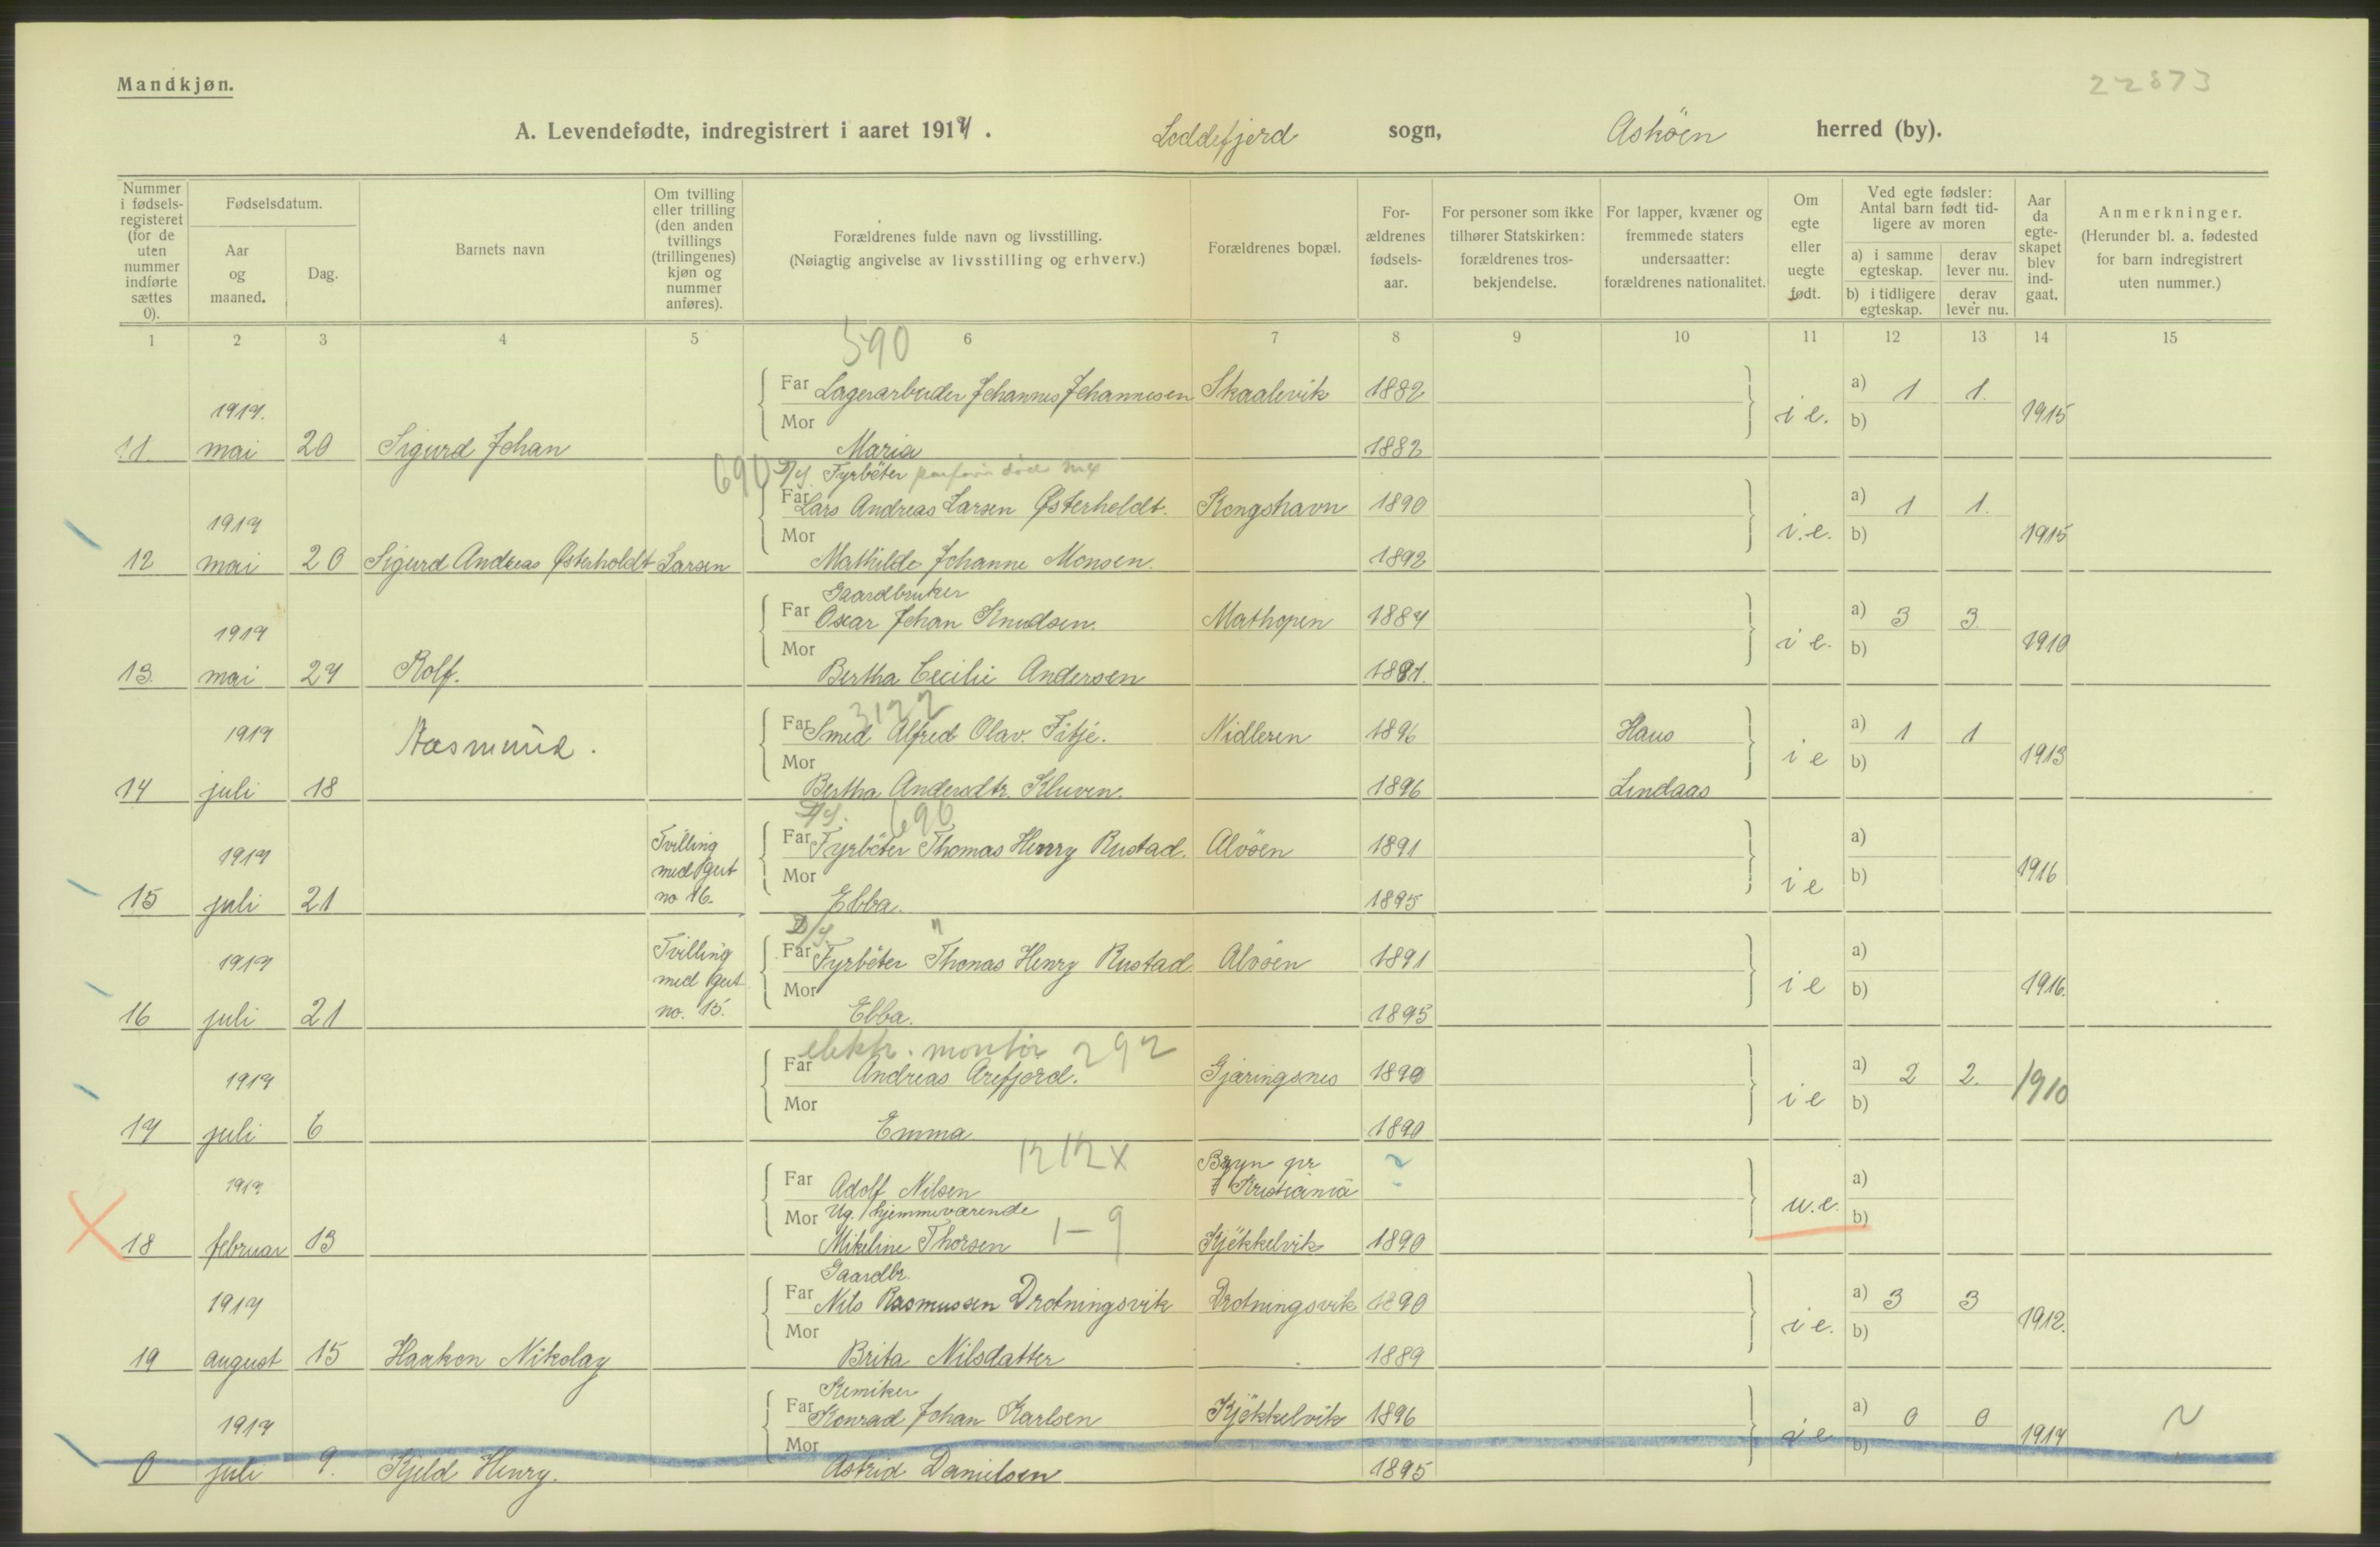 Mandkjøn.
22873
A. Levendefødte, indregistrert i aaret 1917. Loddefjord sogn, Askøen herred (by).
Nummer i fødsels-registeret (for de uten nummer indførte sættes 0).
Fødselsdatum.
Aar og maaned.
Dag.
Barnets navn
Om tvilling eller trilling (den anden tvillings (trillingenes) kjøn og nummer anføres).
Forældrenes fulde navn og livsstilling.
(Nøiagtig angivelse av livsstilling og erhverv.)
Forældrenes bopæl.
For-ældrenes fødsels-aar.
For personer som ikke tilhører Statskirken: forældrenes tros-bekjendelse.
For lapper, kvæner og fremmede staters undersaatter: forældrenes nationalitet.
Om egte eller uegte født.
Ved egte fødsler: Antal barn født tid-ligere av moren
a) i samme egteskap.
derav lever nu.
b) i tidligere egteskap.
derav lever nu.
Aar da egte-skapet blev ind-gaat.
Anmerkninger.
(Herunder bl. a. fødested for barn indregistrert uten nummer.)
1 2 3 4 5 6 7 8 9 10 11 12 13 14 15
590
Far Lagerarbeider Johannes Johannesen Skaalevik 1882
1917. i e. a) 1 1. 1915
Mor b)
11. mai 20 Sigurd Johan Maria 1882
690 D/y. Fyrböter
Far Lars Andreas Larsen Østerholdt. Kongshavn 1890
1917 i.e. a) 1 1. 1915
Mor b)
12 mai 20 Sigurd Andreas Østerholdt Larsen Mathilde Johanne Monsen. 1892
Gaardbruker
Far Oscar Johan Knudsen. Mathopen 1887
1917 i e. a) 3 3. 1910
Mor b)
13. mai 27 Rolf. Bertha Cecilie Andersen 1891.
3122
Far Smed Alfred Olav. Titje. Nidleren 1896 Haus
1917 Rasmund. i e a) 1 1 1913
Mor b)
14 juli 18 Bertha Andersdtr. Kluven. 1896 Lindaas
D/y. 690
Tvilling med gut no 16.
Far Fyrböter Thomas Henry Rustad. Alvöen 1891
1917 i e a) 1916
Mor b)
15 juli 21 Ebba. 1895
D/y. "
Tvilling med gut no. 15.
Far Fyrböter Thomas Henry Rustad Alvöen 1891
1917 i e a) 1916.
Mor b)
16 juli 21 Ebba. 1895
elektr. montör 292
Far Andreas Arefjord. Gjæringsnes 1890
1917 i e a) 2 2. 1910
Mor b)
17 juli 6 Emma. 1890
1212 x
Bryn pr
Far Adolf Nilsen Kristiania ?
1917 u.e. a)
Mor Ug. hjemmeværende b)
18 februar 13 Mikeline Thorsen 1-9 Kjökkelvik 1890
Gaardbr.
Far Nils Rasmussen Drotningsvik Drotningsvik 1890
1917 i e. a) 3 3 1912.
Mor b)
19 august 15 Haakon Nikolay Brita Nilsdatter 1889
Kemiker
Far Konrad Johan Karlsen Kjökkelvik 1896
1917 i e a) 0 0 1917 N
Mor b)
0 juli 9. Kjeld Henry. Astrid Danielsen 1895